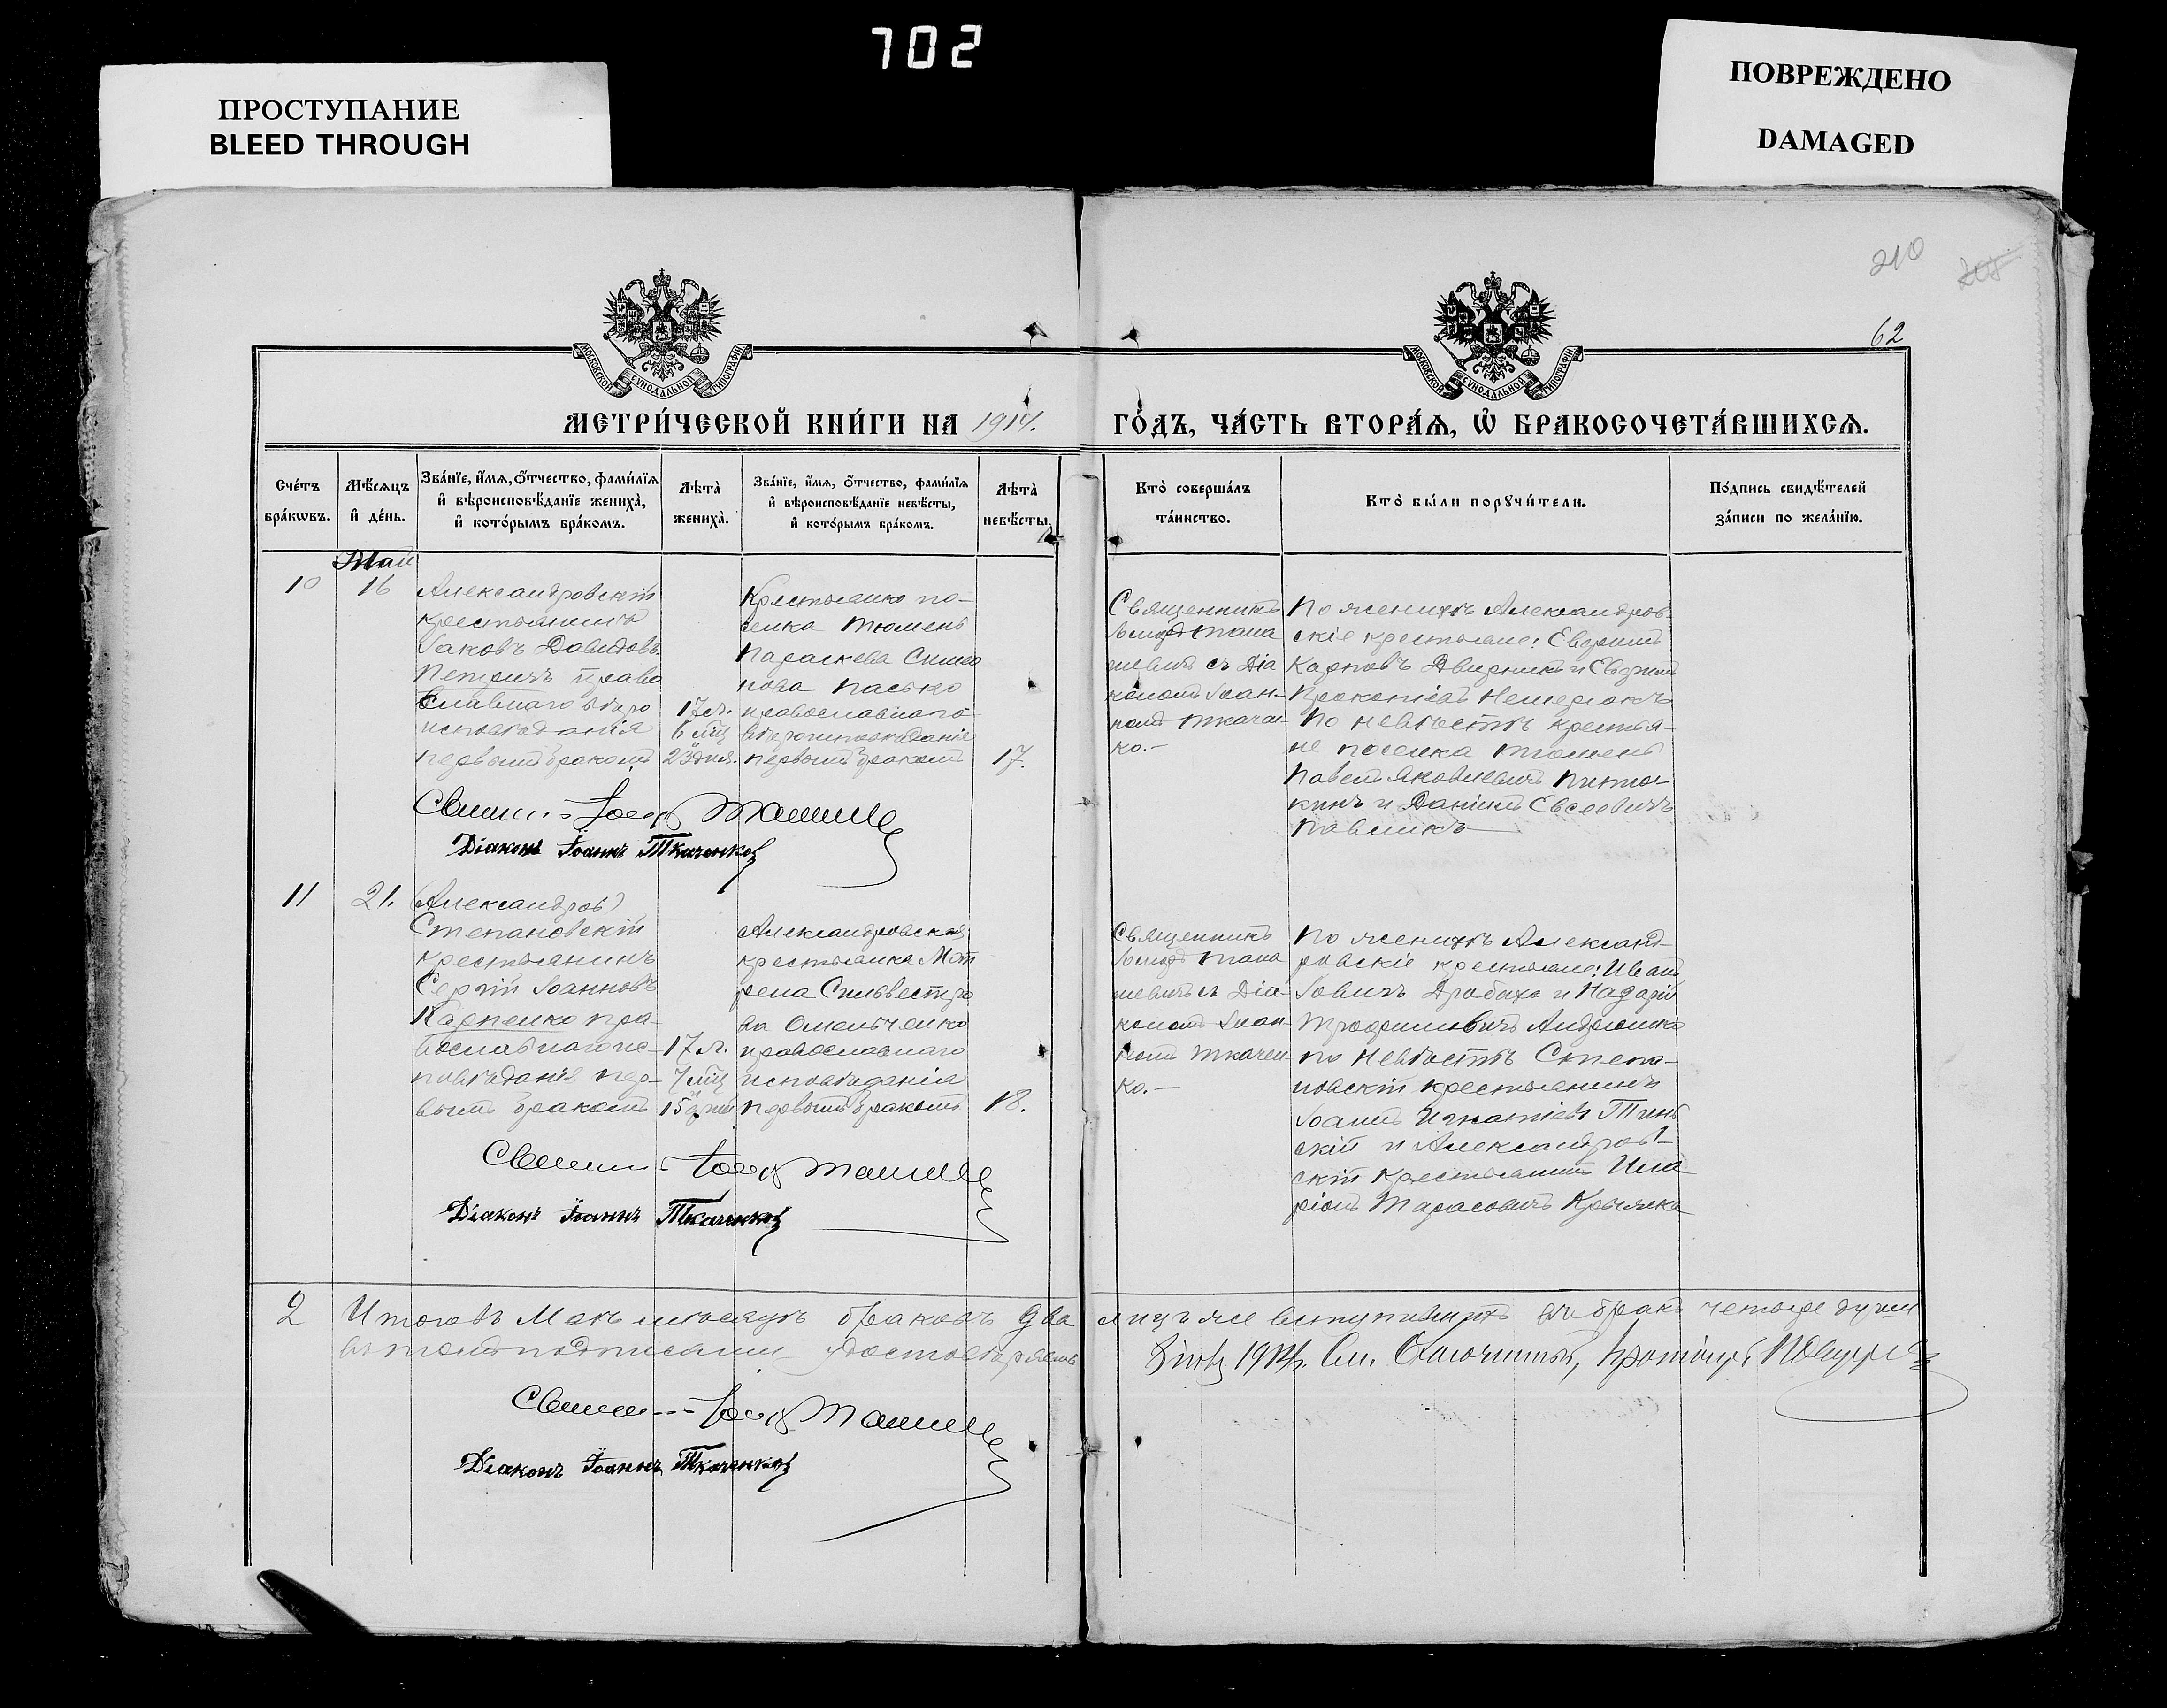 702
ПРОСТУПАНИЕ
BLEED THROUGH
ПОВРЕЖДЕНО
DAMAGED
210
62
МОСКОВСКОЙ СУНОДАЛЬНОЙ ТИПОГРАФІИ
МОСКОВСКОЙ СУНОДАЛЬНОЙ ТИПОГРАФІИ
МЕТРИ́ЧЕСКОЙ КНИ́ГИ НА 1914. ГО́ДЪ, ЧА́СТЬ ВТОРА́Я, Ѿ БРАКОСОЧЕТА́ВШИХСЯ.
Сче́тъ бра́кѡвъ.
Мѣ́сяцъ и҆ де́нь.
Зва́нїе, и҆́мя, ѻ҆́тчество, фами́лїя
и҆ вѣроисповѣ́данїе жениха̀,
и҆ кото́рымъ бра́комъ.
Лѣта̀ жениха̀.
Зва́нїе, и҆́мя, ѻ҆́тчество, фами́лїя
и҆ вѣроисповѣ́данїе невѣ́сты,
и҆ кото́рымъ бра́комъ.
Лѣта̀ невѣ́сты.
Кто̀ соверша́лъ та́инство.
Кто̀ бы́ли порꙋчи́тели.
По́дпись свидѣ́телей
за́писи по жела́нїю.
Май
10
16
Александровскій
крестьянинъ
Іаковъ Давидовъ
Петричъ право
славнаго вѣро
исповѣданія
первымъ бракомъ
17 л.
6 мц
23 дня.
Крестьянка по-
селка Тюмень
Параскева Симео
нова Пасько
православнаго
вѣроисповѣданія
первымъ бракомъ
17.
Священникъ
Іосифъ Тома
шевичъ съ Діа
кономъ Іоан-
номъ Ткачен
ко.-
По женихѣ Александров-
скіе крестьяне: Евфимій
Карповъ Дворникъ и Евфимій
Прокопіевъ
По невѣстѣ крестья-
не поселка Тюмень
Павелъ Яковлевичъ
и Даніилъ Евсеевичъ
Павликъ
Свящ. Іосифъ
Діаконъ Іоаннъ Ткаченко
11
21.
(Александров)
Степановскій
крестьянинъ
Сергій Іоанновъ
Карпенко пра-
вославнаго ис-
повѣданія пер-
вымъ бракомъ
17 л.
7 мц
15 дней
Александровская
крестьянка Мат
рена Сильвестро
ва Омельченко
православнаго
исповѣданія
первымъ бракомъ
18.
Священникъ
Іосифъ Тома
шевичъ съ Діа-
кономъ Іоан-
номъ Ткачен-
ко.-
По женихѣ Александ-
ровскіе крестьяне: Иванъ
Дробаха и
Трофимовичъ Андрющенко
по невѣстѣ Степа-
новскій крестьянинъ
Іоаннъ Игнатіевъ
и Александров-
скій крестьянинъ Ила
ріонъ Тарасовичъ
Свящ. Іосифъ
Діаконъ Іоаннъ Ткаченко
2
Итого въ Маѣ мѣсяцѣ браковъ два лицъ же вступившихъ въ бракъ четыре души
въ томъ подписами удостовѣряемъ
1914 г.
Свящ. Іосифъ
Діаконъ Іоаннъ Ткаченко